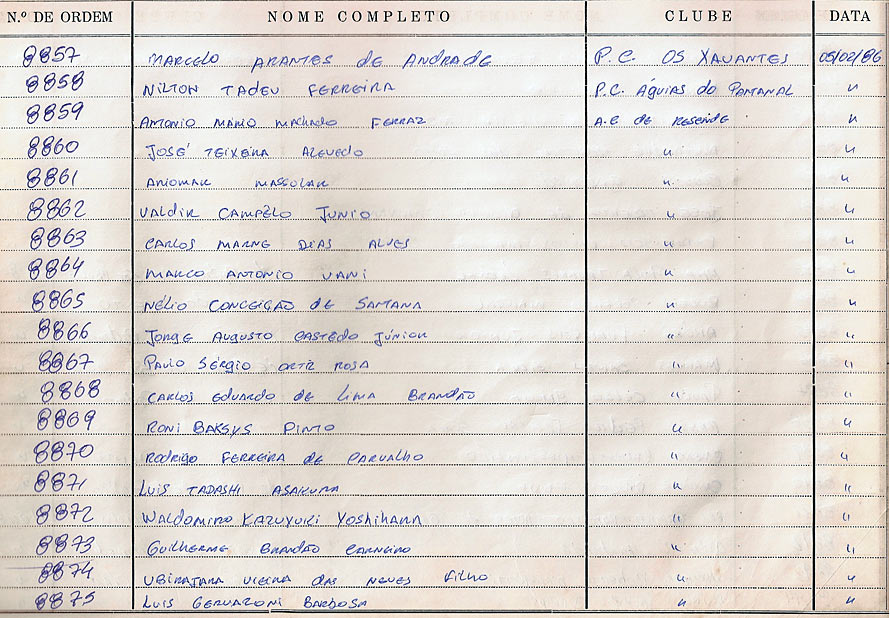 N.º DE ORDEM NOME COMPLETO CLUBE DATA
8857 MARCELO ARANTES de ANDRADE P.C. OS XAVANTES 05/02/86
8858 NILTON TADEU FERREIRA P.C. ÁGUIAS do PANTANAL "
8859 ANTONIO MARIO MACHADO FERRAZ A.C de RESENDE "
8860 JOSÉ TEIXEIRA AZEVEDO " "
8861 MASSOLAR " "
8862 VALDIR CAMPÊLO JUNIO " "
8863 CARLOS MARNE DIAS ALVES " "
8864 MARCO ANTONIO VANI " "
8865 NÉLIO CONCEIÇÃO de SANTANA " "
8866 JORGE AUGUSTO CASTEDO JÚNIOR " "
8867 PAULO SÉRGIO ORTIZ ROSA " "
8868 CARLOS EDUARDO de LIMA BRANDÃO " "
8869 RONI BAKSYS PINTO " "
8870 RODRIGO FERREIRA de CARVALHO " "
8871 LUIS TADASHI ASAKURA " "
8872 WALDOMIRO KAZUYUKI YOSHIHARA " "
8873 GUILHERME BRANDÃO CARNEIRO " "
8874 UBIRATARA VIEIRA DAS NEVES FILHO " "
8875 LUIS GERVAZONI BARBOSA " "